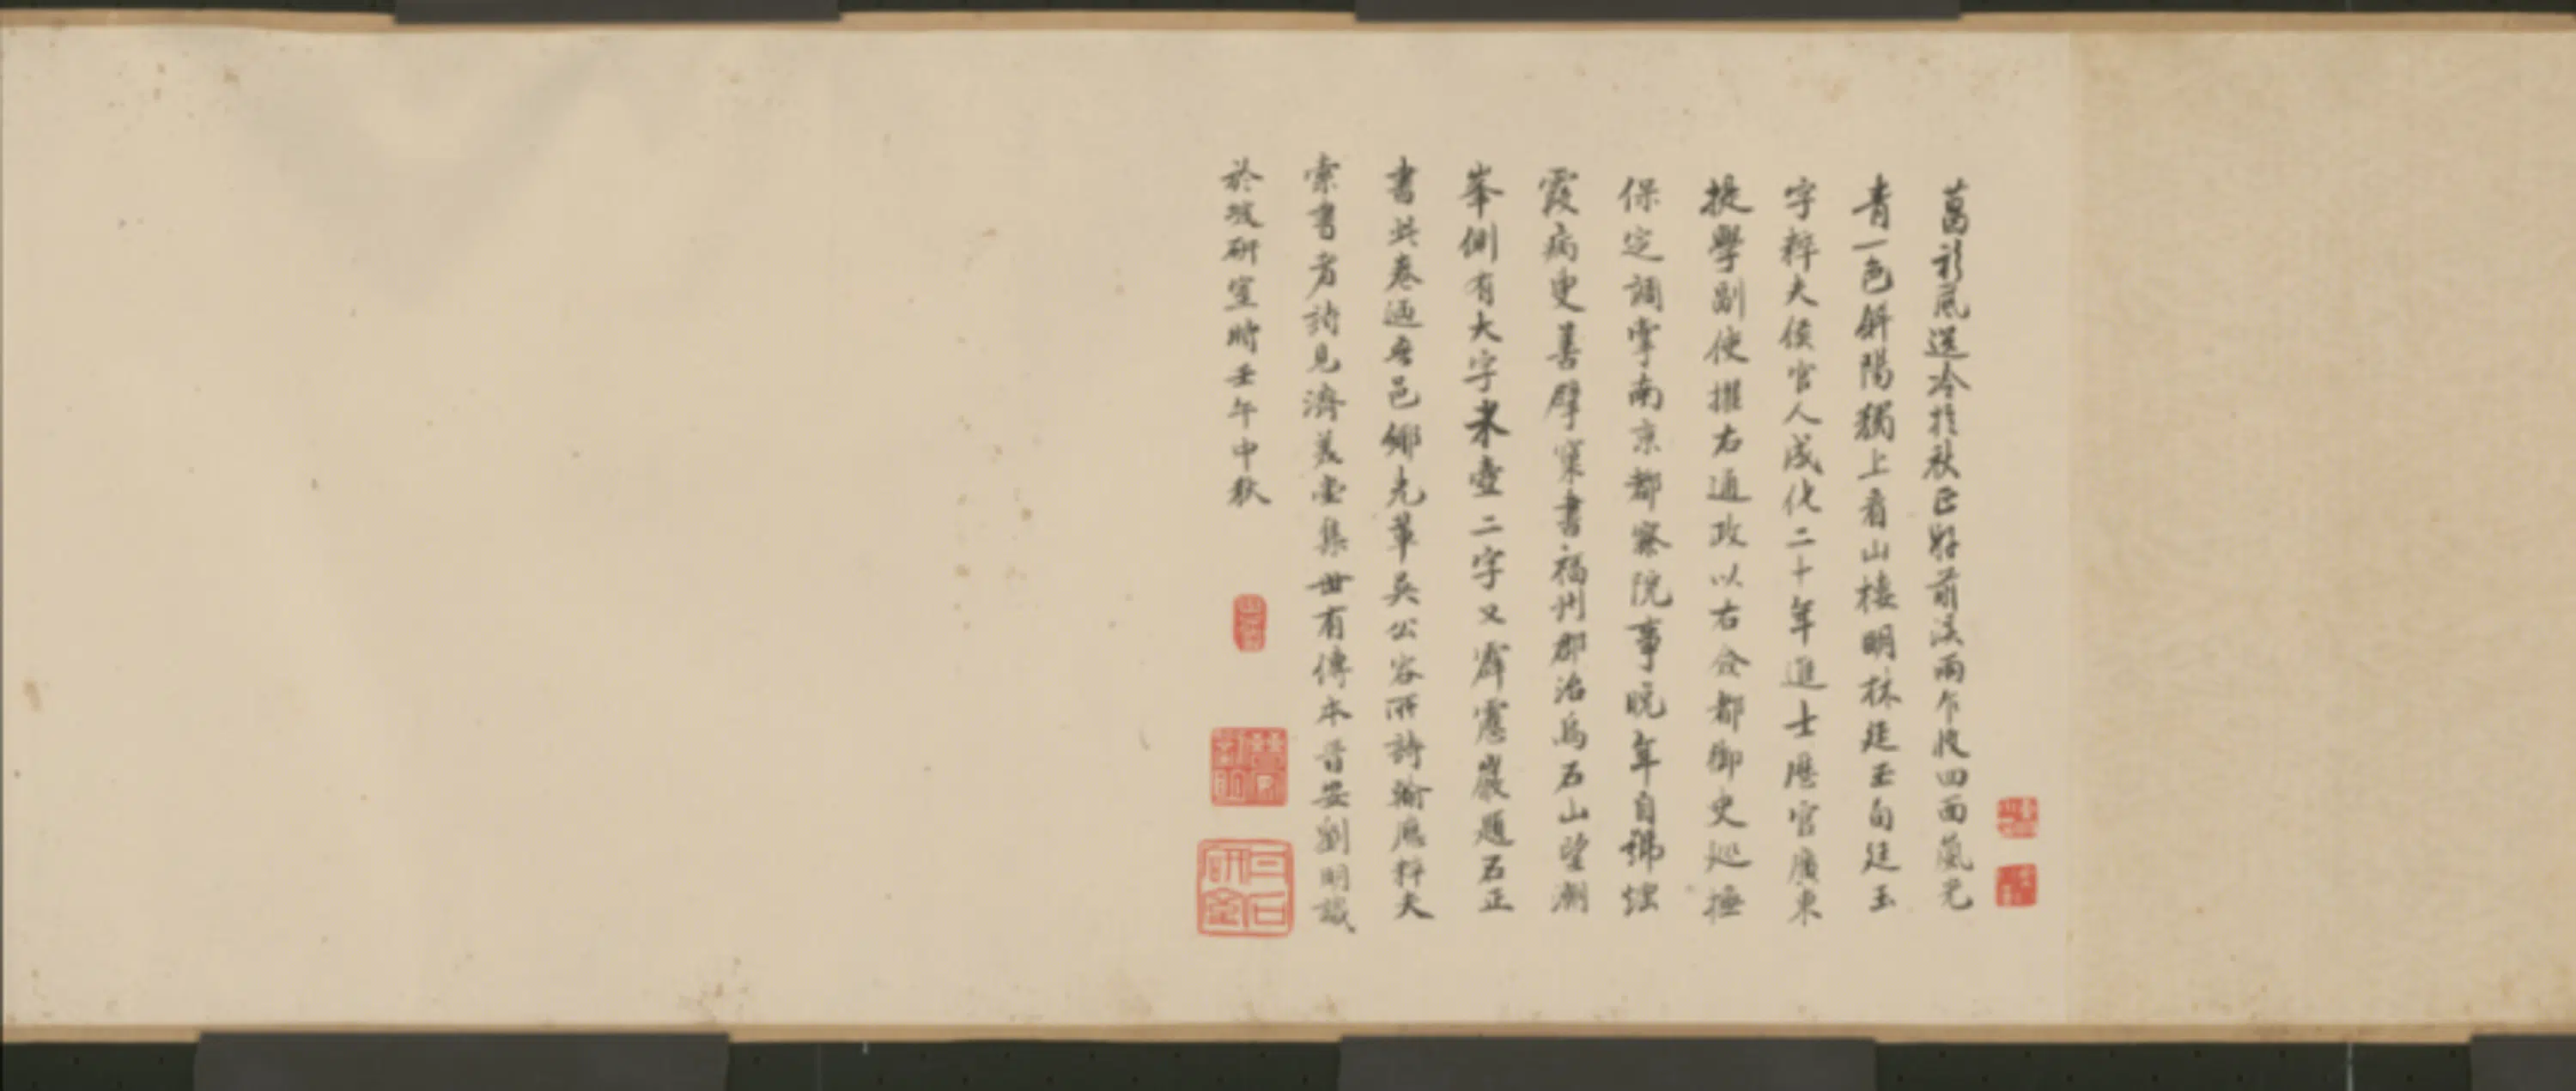 葛衫風透冷於秋正好前溪雨乍收四面嵐光
青一色斜陽獨上看山樓明林廷玉句廷玉
字粹夫侯官人成化二十年進士歷官廣東
提學副使擢右通政以右僉都御史巡撫
保定調掌南京都察院事晚年自號烟
霞病叟善擘窠書福州郡治烏石山望潮
峯側有大字米壺二字又霹靂巖題石正
書此卷迺吾邑鄉先輩吳公客所詩翰應粹夫
索書者詩見濟美堂集世有傳本晉安劉明識
於玻研室時壬午中秋